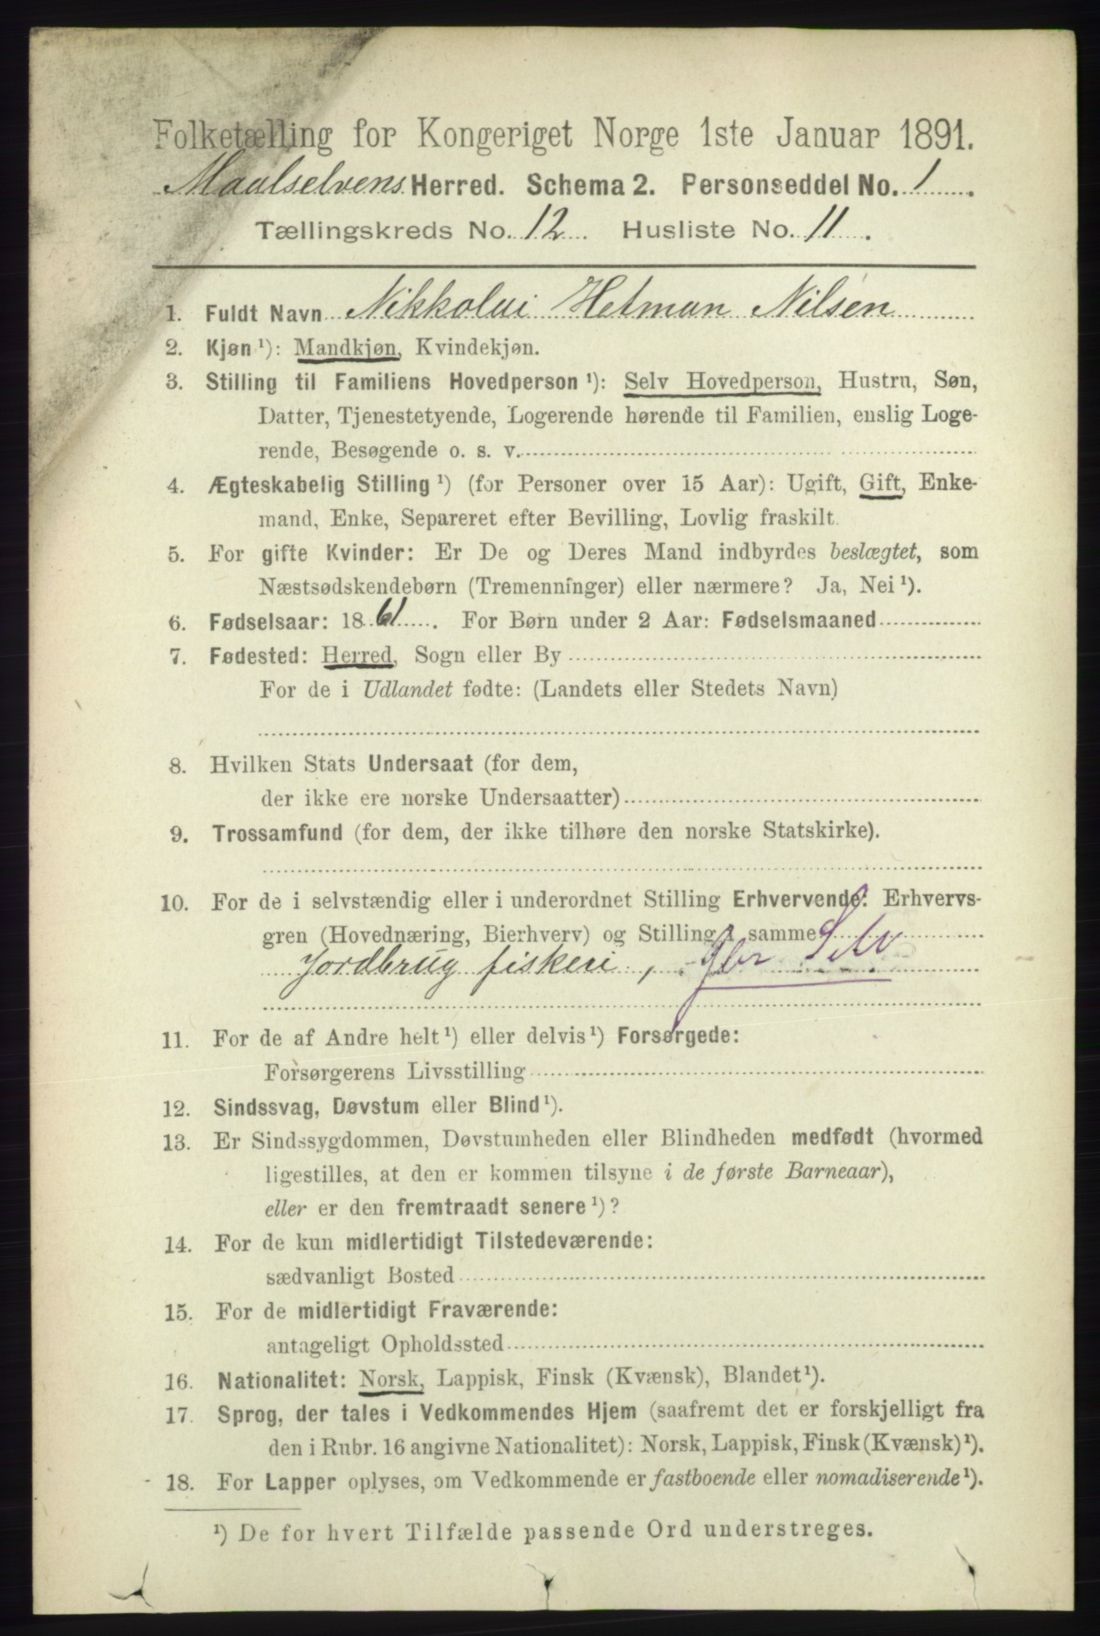 Folketælling for Kongeriget Norge 1ste Januar 1891.
Maalselvens Herred. Schema 2. Personseddel No. 1.
Tællingskreds No. 12. Husliste No. 11.
1. Fuldt Navn Nikkolai Hetman Nilsen
2. Kjøn ¹): Mandkjøn, Kvindekjøn.
3. Stilling til Familiens Hovedperson ¹): Selv Hovedperson, Hustru, Søn,
Datter, Tjenestetyende, Logerende hørende til Familien, enslig Loge-
rende, Besøgende o. s. v.
4. Ægteskabelig Stilling ¹) (for Personer over 15 Aar): Ugift, Gift, Enke-
mand, Enke, Separeret efter Bevilling, Lovlig fraskilt.
5. For gifte Kvinder: Er De og Deres Mand indbyrdes beslægtet, som
Næstsødskendebørn (Tremenninger) eller nærmere? Ja, Nei ¹).
6. Fødselsaar: 1861. For Børn under 2 Aar: Fødselsmaaned
7. Fødested: Herred, Sogn eller By
For de i Udlandet fødte: (Landets eller Stedets Navn)
8. Hvilken Stats Undersaat (for dem,
der ikke ere norske Undersaatter)
9. Trossamfund (for dem, der ikke tilhøre den norske Statskirke).
10. For de i selvstændig eller i underordnet Stilling Erhvervende: Erhvervs-
gren (Hovednæring, Bierhverv) og Stilling i samme
Jordbrug fiskeri, Gbr Selv
11. For de af Andre helt ¹) eller delvis ¹) Forsørgede:
Forsørgerens Livsstilling
12. Sindssvag, Døvstum eller Blind ¹).
13. Er Sindssygdommen, Døvstumheden eller Blindheden medfødt (hvormed
ligestilles, at den er kommen tilsyne i de første Barneaar),
eller er den fremtraadt senere ¹)?
14. For de kun midlertidigt Tilstedeværende:
sædvanligt Bosted
15. For de midlertidigt Fraværende:
antageligt Opholdssted
16. Nationalitet: Norsk, Lappisk, Finsk (Kvænsk), Blandet ¹).
17. Sprog, der tales i Vedkommendes Hjem (saafremt det er forskjelligt fra
den i Rubr. 16 angivne Nationalitet): Norsk, Lappisk, Finsk (Kvænsk) ¹).
18. For Lapper oplyses, om Vedkommende er fastboende eller nomadiserende ¹).
¹) De for hvert Tilfælde passende Ord understreges.